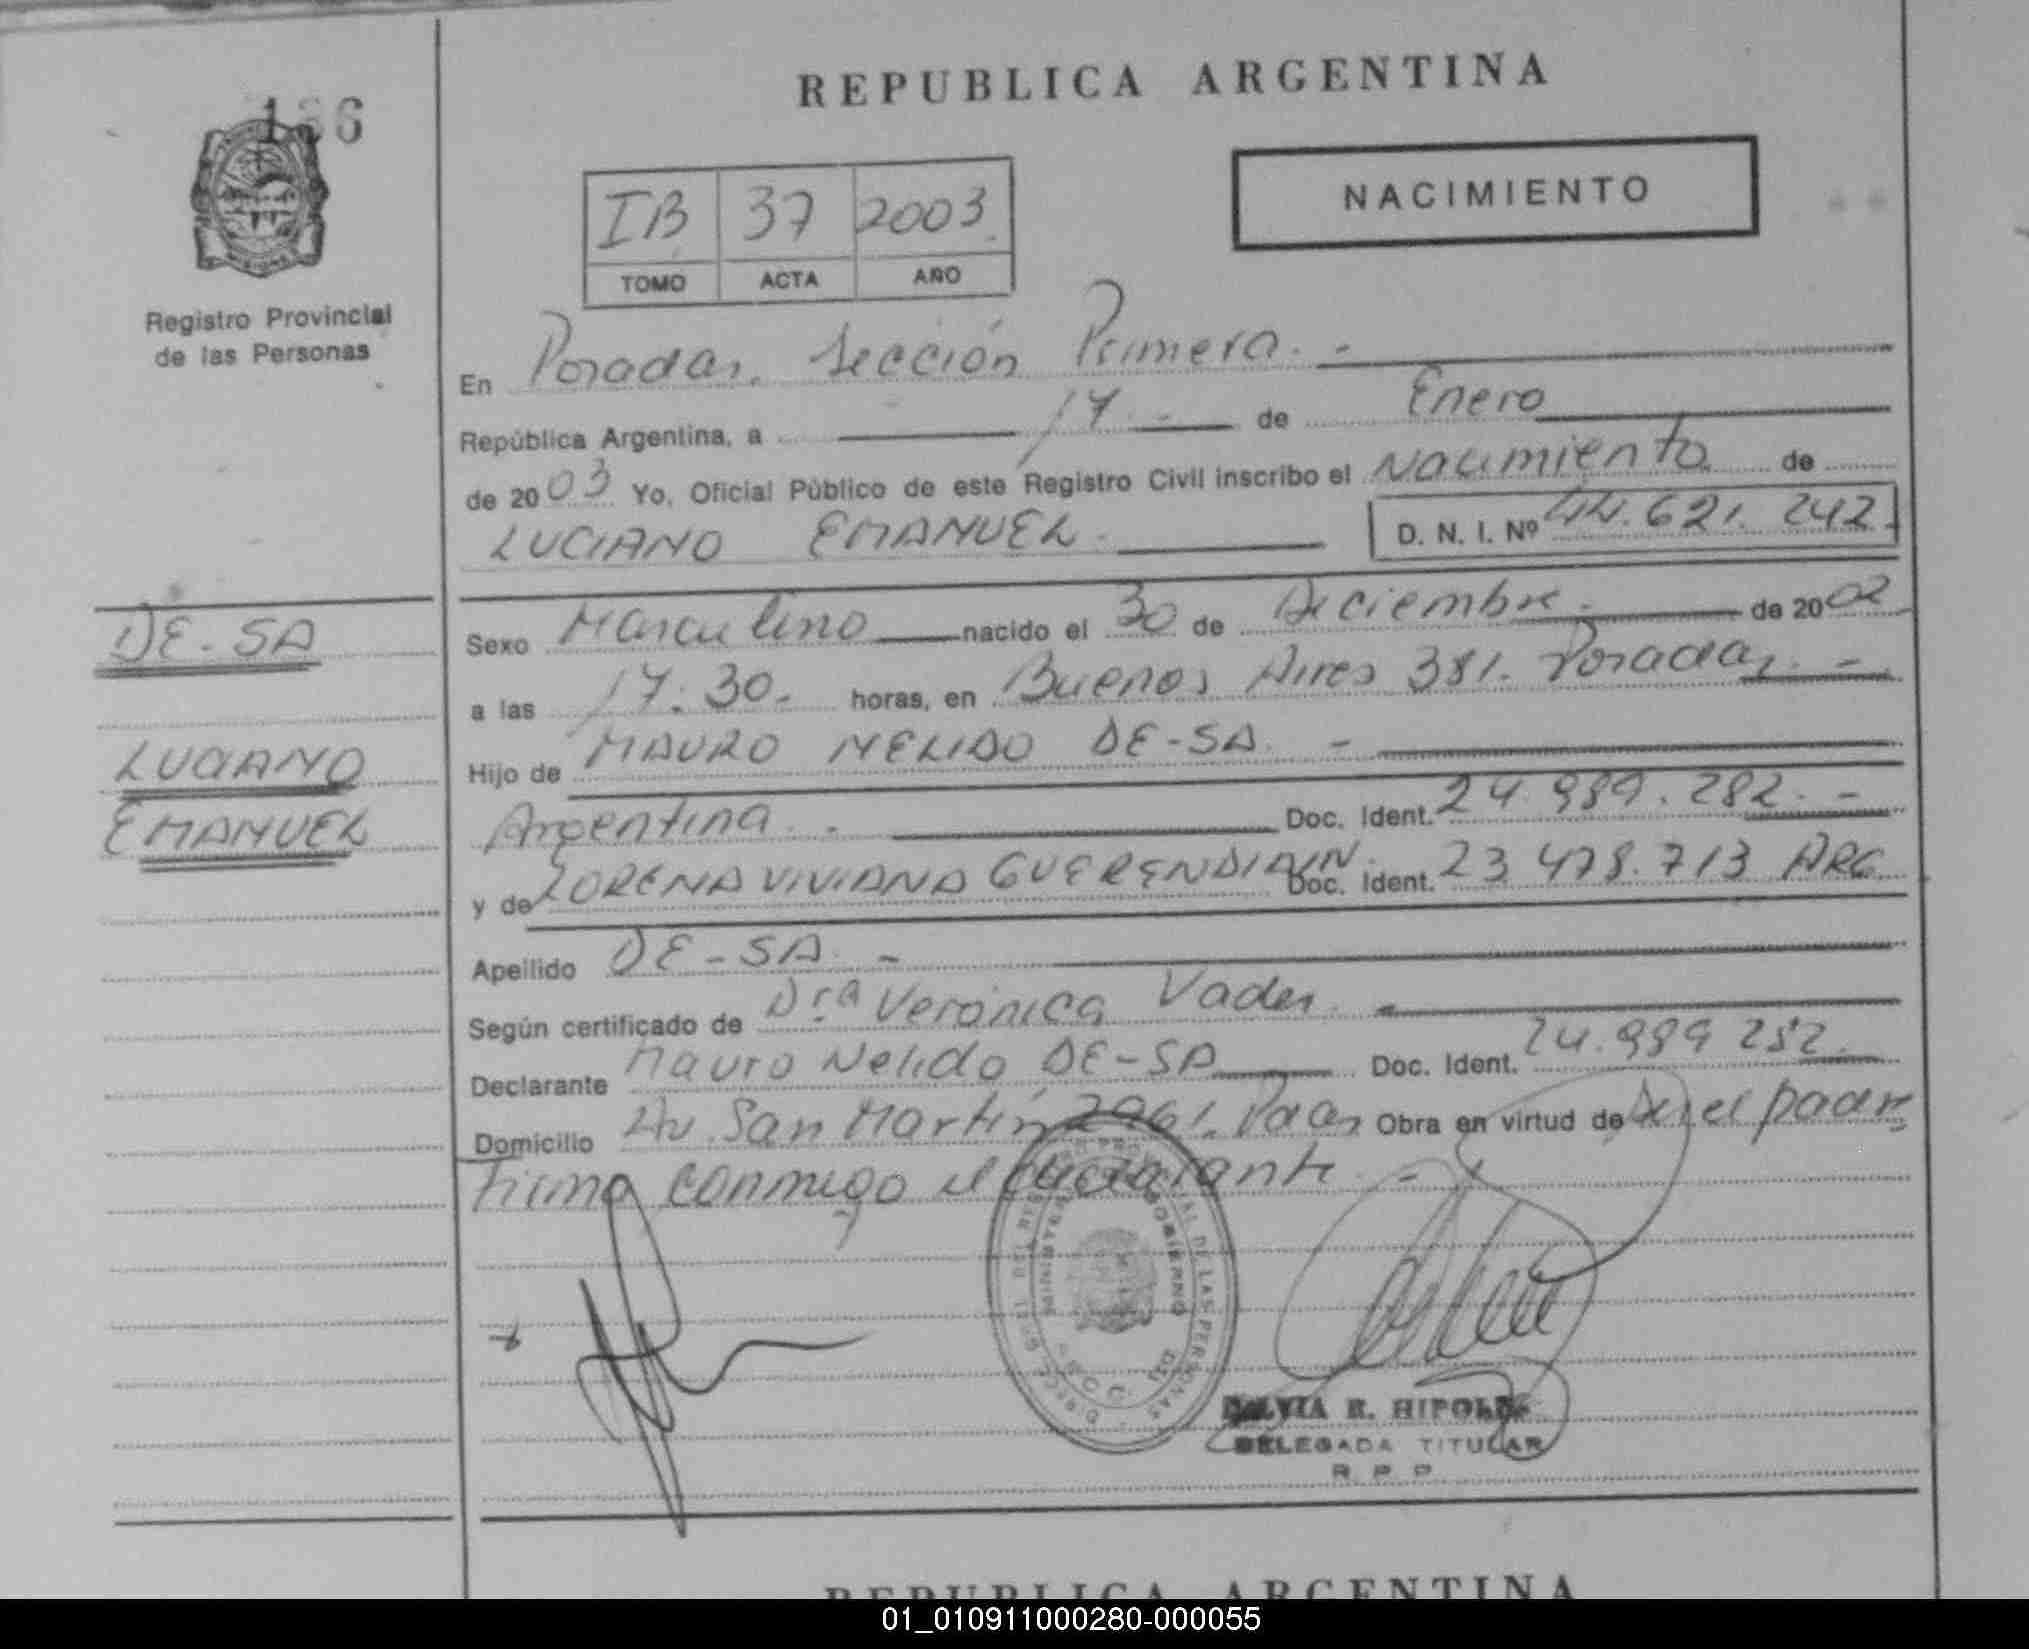 REPUBLICA ARGENTINA
NACIMIENTO
IB 37 2003
TOMO ACTA AÑO
Registro Provincial
de las Personas
En Posadas. Sección Primera. -
República Argentina, a 17 - de Enero
de 2003 Yo, Oficial Público de este Registro Civil inscribo el Nacimiento de
LUCIANO EMANUEL. D. N. I. Nº 44.621.242
DE-SA
LUCIANO
EMANUEL
Sexo Masculino nacido el 30 de Diciembre. de 2002
a las 17.30. horas, en Buenos Aires 381. Posadas. -
Hijo de MAURO NELIDO DE-SA. -
Argentina. . Doc. Ident. 24.989.282. -
y de LORENA VIVIANA GUERENDIAIN. Doc. Ident. 23.478.713 ARG.
Apellido DE-SA. -
Según certificado de Drª Verónica Vader. -
Declarante Mauro Nelido DE-SA Doc. Ident. 24.989.282.
Domicilio Av. San Martín 2961. Pdas Obra en virtud de Ser el padre
Firma conmigo el declarante. -
HIPOLITO
DELEGADA TITULAR
R P P
REPUBLICA ARGENTINA
01_010911000280-000055